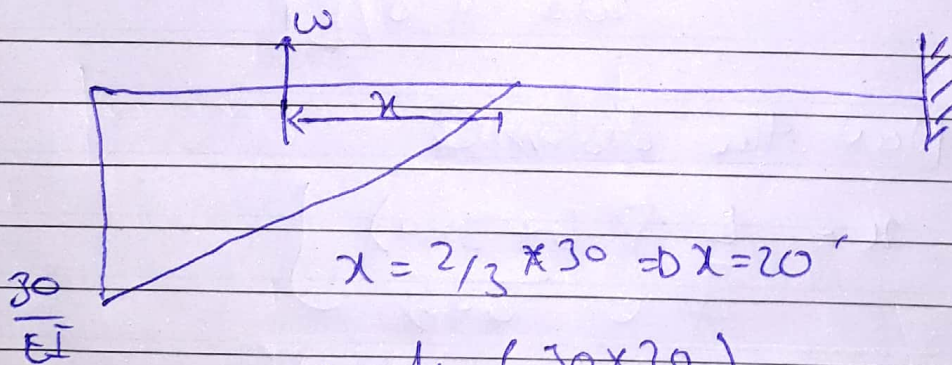 w
x
x = 2/3 * 30 => x = 20'
30
EI